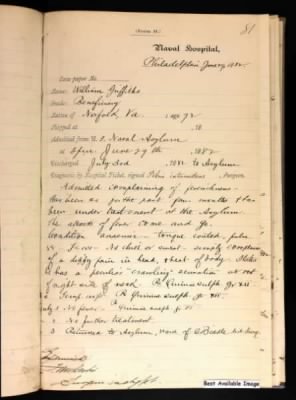 81
(Form 18.)
Naval Hospital,
Philadelphia June 29, 1882
Case-paper No.
Name: William Griffiths
Grade: Beneficiary
Native of Norfolk, Va. age 72
Shipped at 18
Admitted from U. S. Naval Asylum
June 29th 1882
Discharged July 3rd 1882 to Asylum
Diagnosis by Hospital Ticket, signed Febris Intermittens Surgeon.
Admitted complaining of
Has been so for the past four months & has
been under treatment at the Asylum.
The attacks of fever come and go.
Condition anaemic tongue coated, pulse
No chill or sweat simply complains
of a feeling in head, & heat of body. States
he has a peculiar "crawling" sensation at root
of right side of neck. R Quinia sulph. gr
R Quinia sulph. gr.
July 1 No fever. Quinia sulph gr
2 No further treatment
3 Returned to Asylum,
Best Available Image